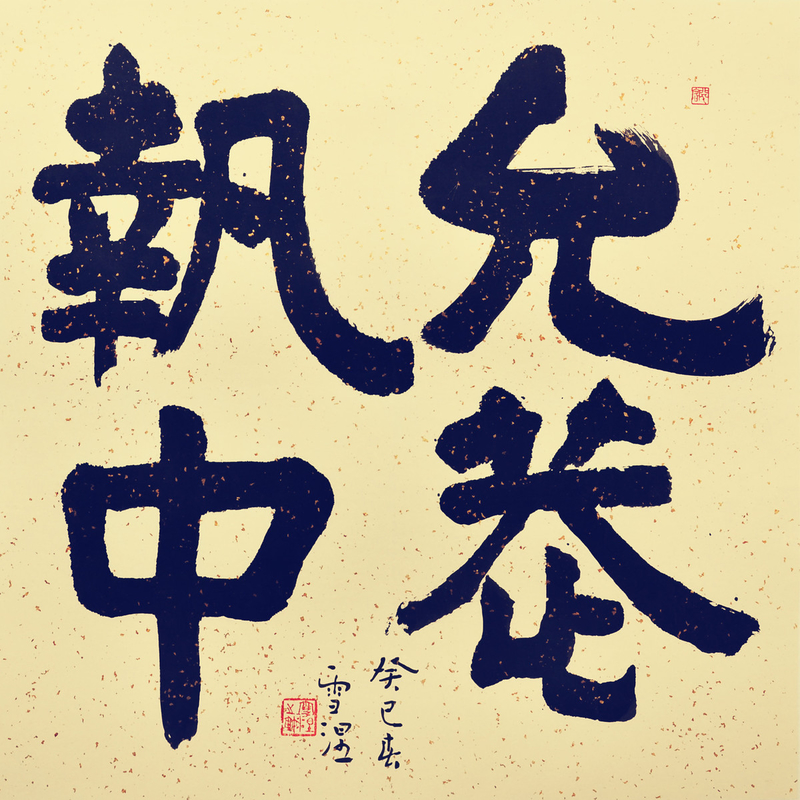 允
執中
癸巳春
雪涅